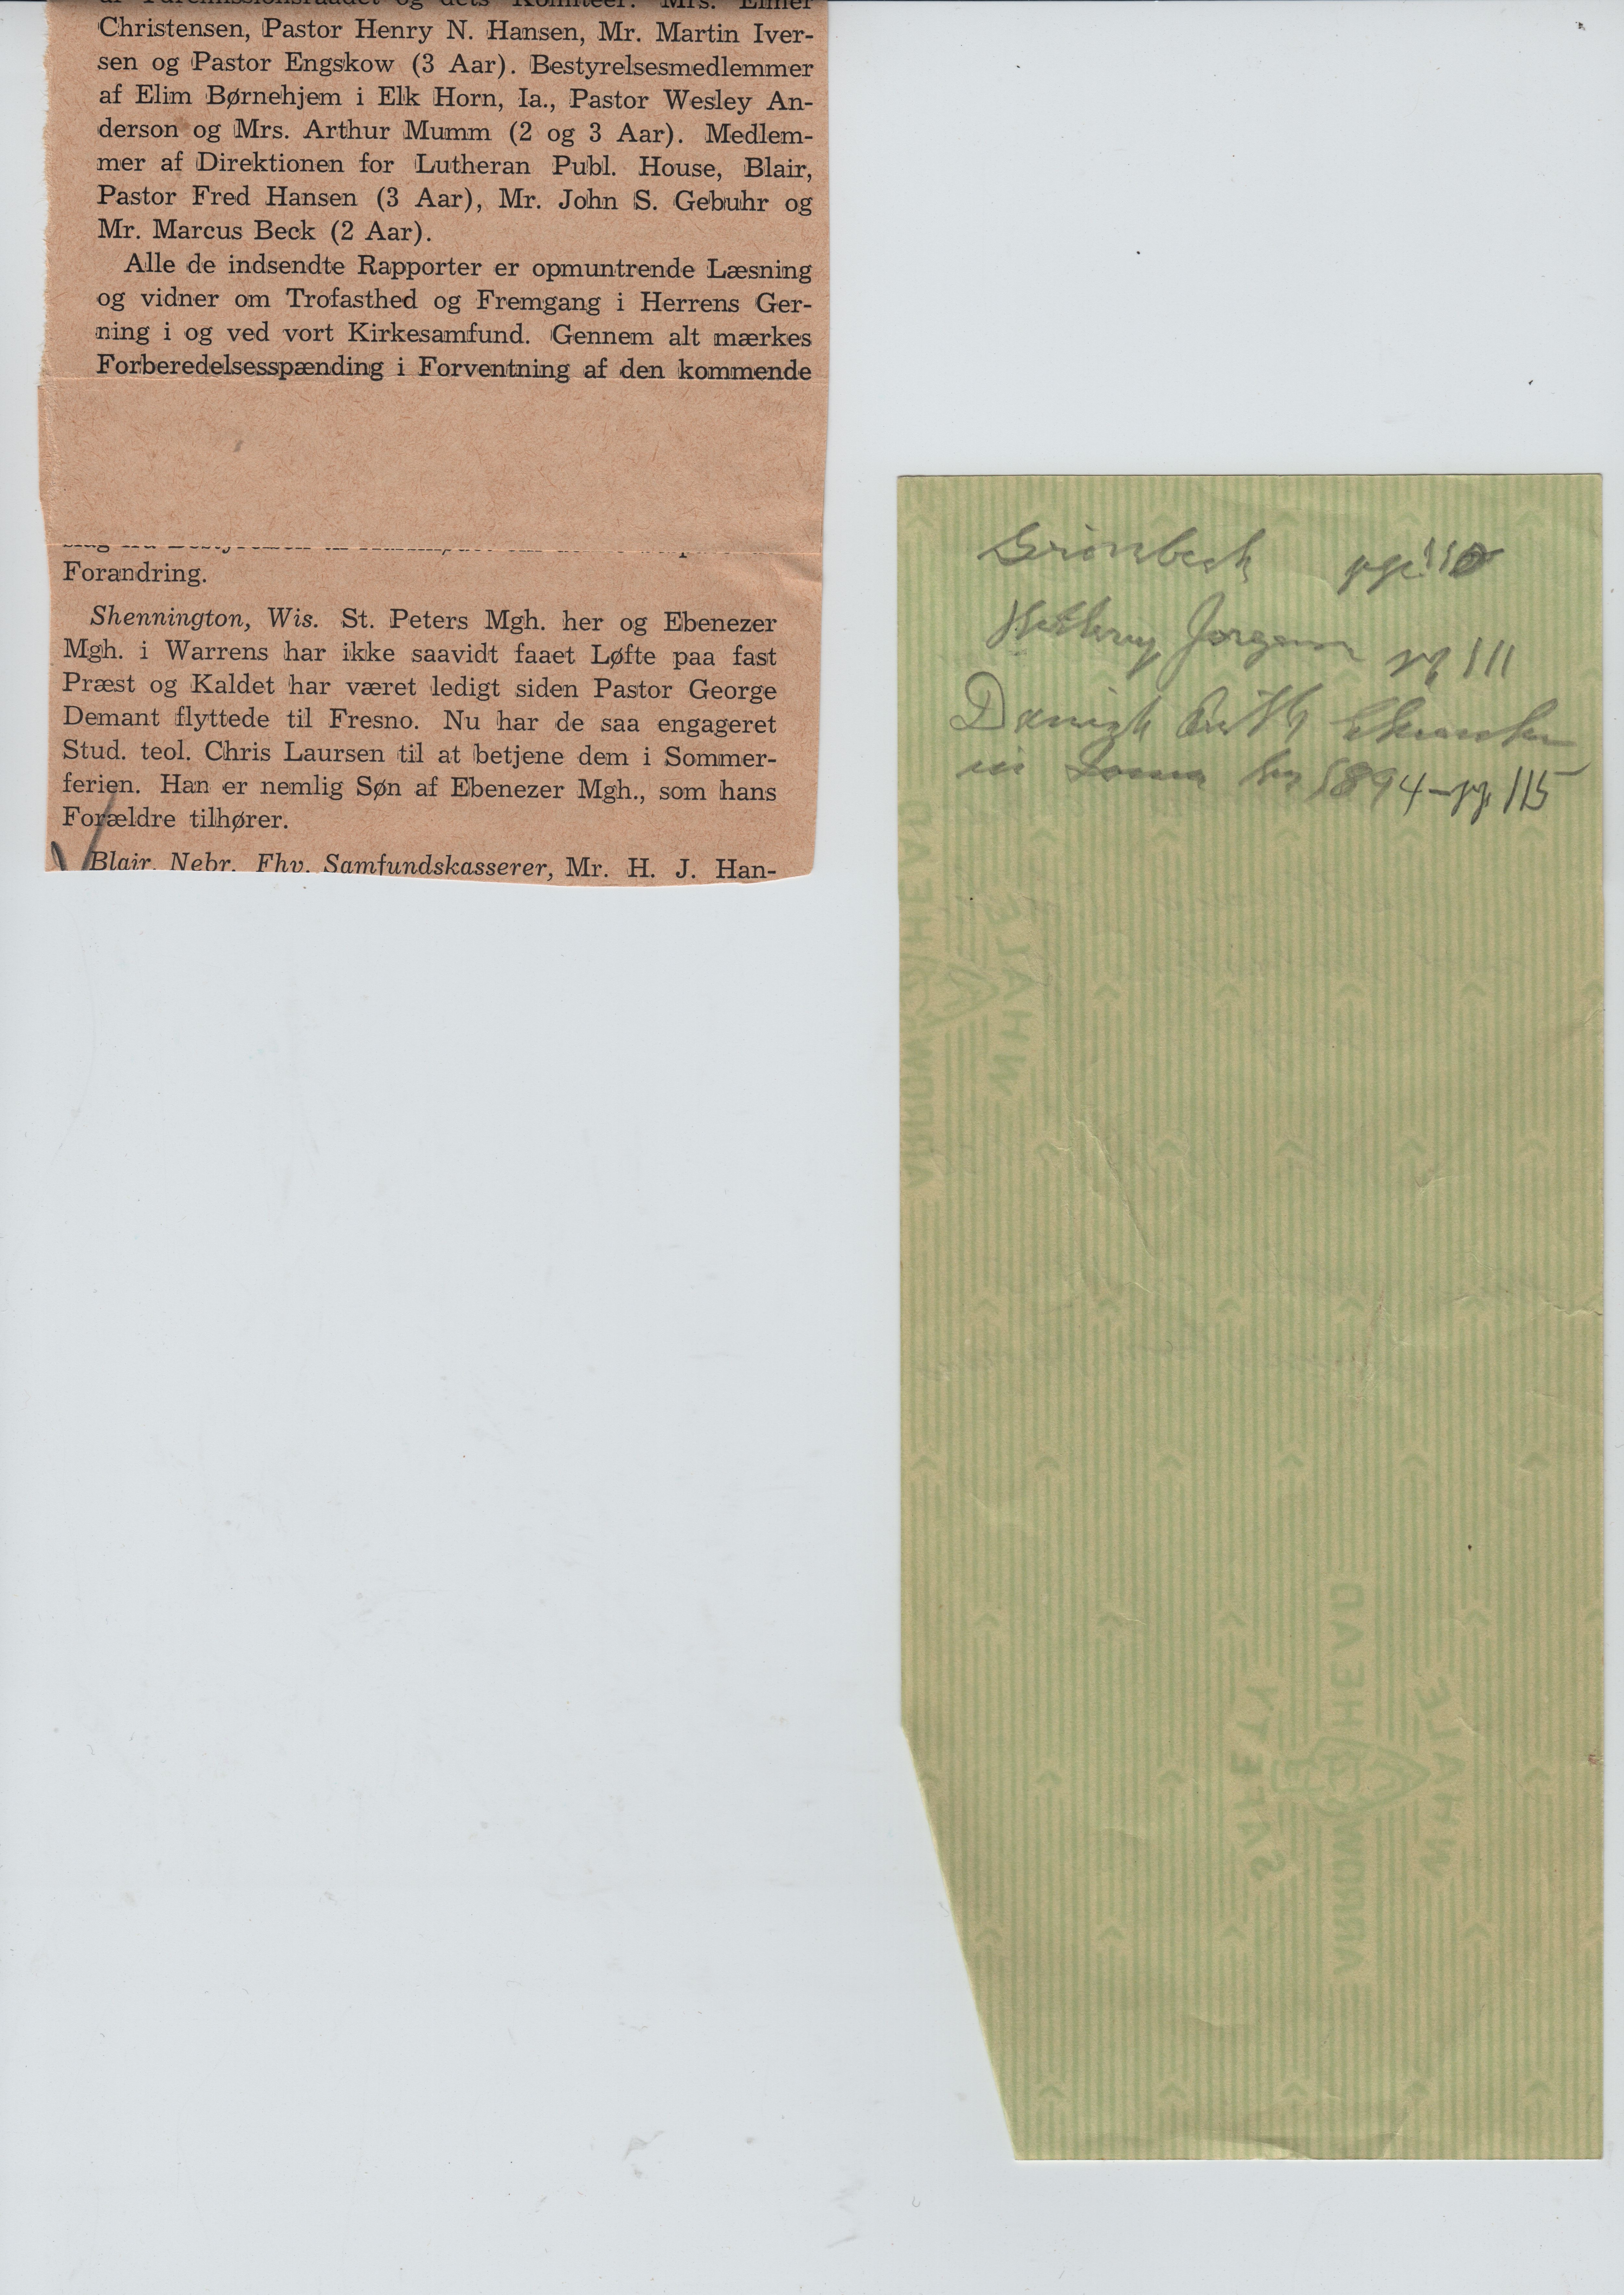 Christensen, Pastor Henry N. Hansen, Mr. Martin Iver-
sen og Pastor Engskow (3 Aar). Bestyrelsesmedlemmer
af Elim Børnehjem i Elk Horn, Ia., Pastor Wesley An-
derson og Mrs. Arthur Mumm (2 og 3 Aar). Medlem-
mer af Direktionen for Lutheran Publ. House, Blair,
Pastor Fred Hansen (3 Aar), Mr. John S. Gebuhr og
Mr. Marcus Beck (2 Aar).
Alle de indsendte Rapporter er opmuntrende Læsning
og vidner om Trofasthed og Fremgang i Herrens Ger-
ning i og ved vort Kirkesamfund. Gennem alt mærkes
Forberedelsesspænding i Forventning af den kommende
Forandring.
Shennington, Wis. St. Peters Mgh. her og Ebenezer
Mgh. i Warrens har ikke saavidt faaet Løfte paa fast
Præst og Kaldet har været ledigt siden Pastor George
Demant flyttede til Fresno. Nu har de saa engageret
Stud. teol. Chris Laursen til at betjene dem i Sommer-
ferien. Han er nemlig Søn af Ebenezer Mgh., som hans
Forældre tilhører.
Blair, Nebr. Fhv. Samfundskasserer, Mr. H. J. Han-
Grönbeck pge 110
Jorgensen pg 111
Danish Luth Churches
in Iowa 1894 - pg 115
ARROW HEAD
WHALE
SAFETY
ARROW HEAD
WHALE